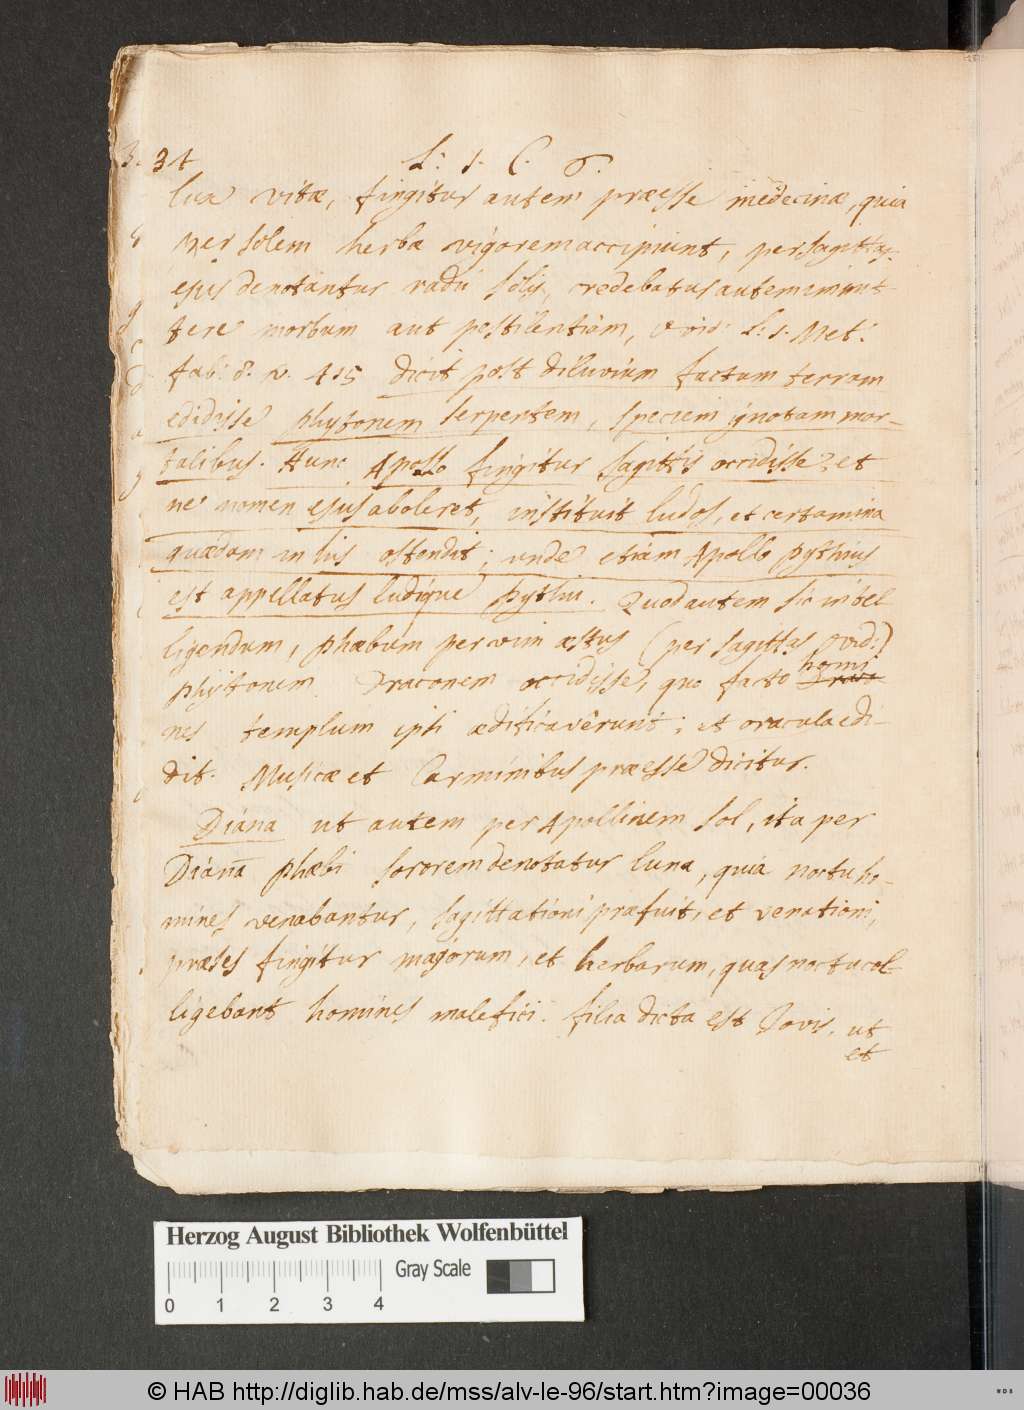 34 L: 1. C. 6.
lux vitæ, fingitur autem præesse medecinæ, quia
per solem herbæ vigorem accipiunt, per sagittas
ejus denotantur radii solis, credebatur autem immit-
tere morbum aut pestilentiam, Ovid: L: 1. Met:
fab: 8. v. 415 dicit post diluvium factum terram
edidisse phytonem serpentem, speciem ignotam mor-
talibus. Hunc Apollo fingitur sagittis occidisse, et
ne nomen ejus aboleret, instituit ludos, et certamina
quædam in his ostendit; unde etiam Apollo Pythius
est appellatus ludique Pythii. Quod autem sic intel
ligendum, Phæbum per vim æstus (per sagittas Ovid:)
phytonem Draconem occidisse, quo facto homi
nes templum ipsi ædificavêrunt; et oracula edi-
dit. Musicæ et Carminibus præesse dicitur.
Diana ut autem per Apollinem sol, ita per
Dianā Phæbi sororem denotatur luna, quia noctu ho-
mines venabantur, sagittationi præfuit, et venationi,
præses fingitur magorum, et herbarum, quas noctu col-
ligebant homines malefici. filia dicta est Jovis, ut
et
Herzog August Bibliothek Wolfenbüttel
Gray Scale
0 1 2 3 4
© HAB http://diglib.hab.de/mss/alv-le-96/start.htm?image=00036